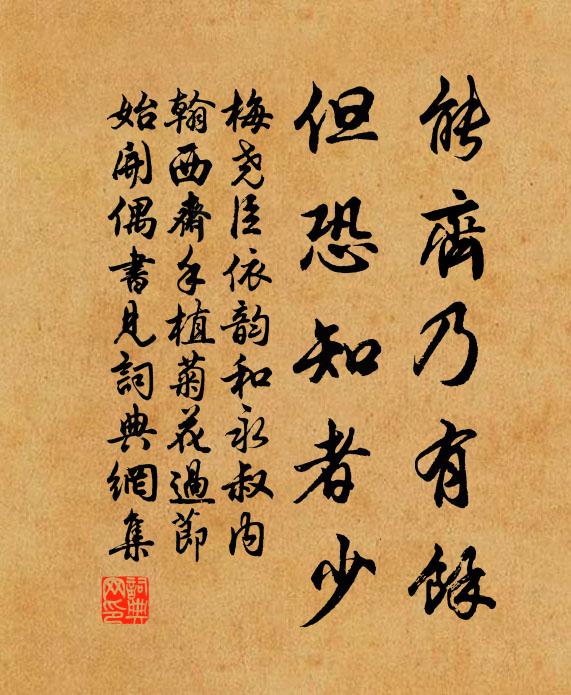 能齊乃有餘
但恐知者少
梅堯臣依韵和永叔内
翰西齋手植菊花過節
始開偶書見詞典網集
詞典
网印